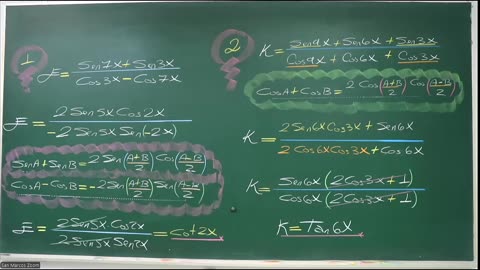 1
E = Sen7x + Sen3x / Cos3x - Cos7x
E = 2Sen5xCos2x / -2Sen5xSen(-2x)
SenA + SenB = 2Sen(A+B/2) Cos(A-B/2)
CosA - CosB = -2Sen(A+B/2) Sen(A-B/2)
E = 2Sen5xCos2x / 2Sen5xSen2x = Cot2x
2
K = Sen9x + Sen6x + Sen3x / Cos9x + Cos6x + Cos3x
CosA + CosB = 2Cos(A+B/2) Cos(A-B/2)
K = 2Sen6xCos3x + Sen6x / 2Cos6xCos3x + Cos6x
K = Sen6x(2Cos3x + 1) / Cos6x(2Cos3x + 1)
K = Tan6x